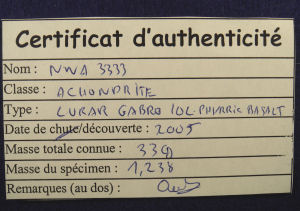 Certificat d'authenticité
Nom : NWA 3333
Classe : ACHONDRITE
Type : LUNAR GABRO /OL-PHYRRIC BASALT
Date de chute/découverte : 2005
Masse totale connue : 33g
Masse du spécimen : 1,238
Remarques (au dos) :